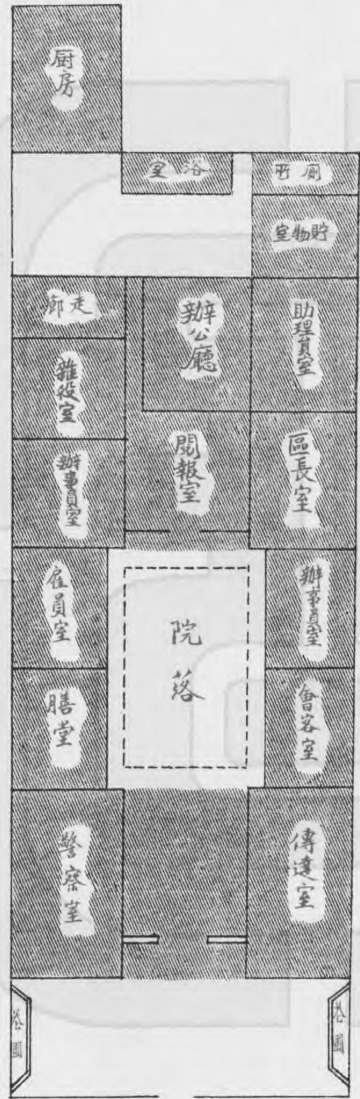 厨房
室浴
所廁
室物貯
廊走
辦公廳
助理員室
雜役室
閱報室
區長室
辦事員室
雇員室
院落
辦事員室
膳堂
會客室
警察室
傳達室
花園
花園